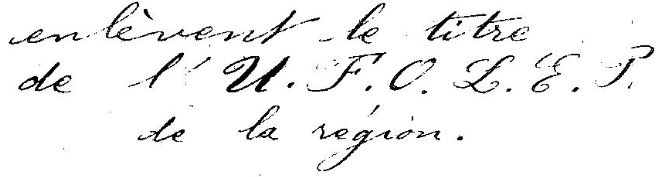 enlèvent le titre
de l'U.F.O.L.E.P.
de la région.